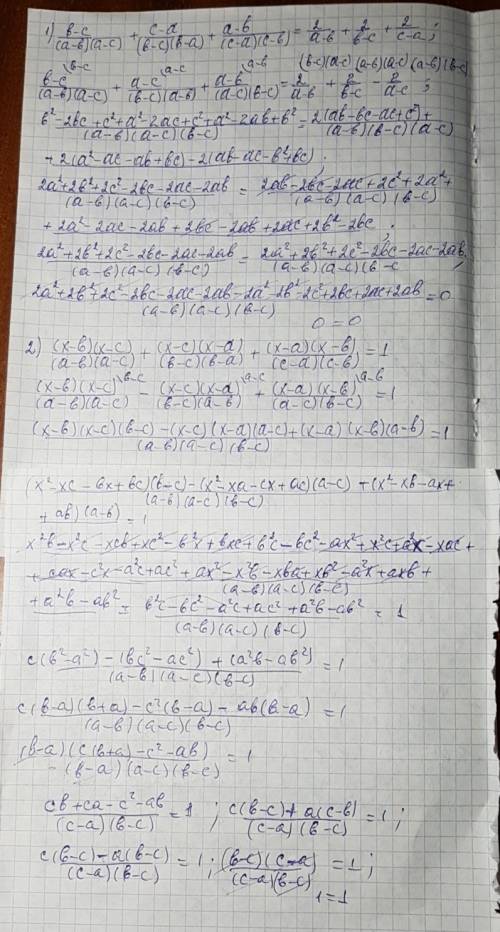 1) (b-c)/((a-b)(a-c)) + (c-a)/((b-c)(b-a)) + (a-b)/((c-a)(c-b)) = 2/(a-b) + 2/(b-c) + 2/(c-a) ;
(b-c)\b-c/((a-b)(a-c)) + (a-c)\a-c/((b-c)(a-b)) + (a-b)\a-b/((a-c)(b-c)) = 2\(b-c)(a-c)/(a-b) + 2\(a-b)(a-c)/(b-c) - 2\(a-b)(b-c)/(a-c) ;
(b²-2bc+c²+a²-2ac+c²+a²-2ab+b²)/((a-b)(a-c)(b-c)) = (2(ab-bc-ac+c²)+)/((a-b)(b-c)(a-c))
+2(a²-ac-ab+bc)-2(ab-ac-b²+bc) .
(2a²+2b²+2c²-2bc-2ac-2ab)/((a-b)(a-c)(b-c)) = (2ab-2bc-2ac+2c²+2a²+)/((a-b)(a-c)(b-c))
+2a²-2ac-2ab+2bc-2ab+2ac+2b²-2bc ;
(2a²+2b²+2c²-2bc-2ac-2ab)/((a-b)(a-c)(b-c)) = (2a²+2b²+2c²-2bc-2ac-2ab)/((a-b)(a-c)(b-c) ;
(2a²+2b²+2c²-2bc-2ac-2ab-2a²-2b²-2c²+2bc+2ac+2ab)/((a-b)(a-c)(b-c)) = 0
0=0
2) ((x-b)(x-c))/((a-b)(a-c)) + ((x-c)(x-a))/((b-c)(b-a)) + ((x-a)(x-b))/((c-a)(c-b)) = 1
((x-b)(x-c))\b-c/((a-b)(a-c)) - ((x-c)(x-a))\a-c/((b-c)(a-b)) + ((x-a)(x-b))\a-b/((a-c)(b-c)) = 1
((x-b)(x-c)(b-c)-(x-c)(x-a)(a-c)+(x-a)(x-b)(a-b))/((a-b)(a-c)(b-c)) = 1
((x²-xc-bx+bc)(b-c)-(x²-xa-cx+ac)(a-c)+(x²-xb-ax+)/((a-b)(a-c)(b-c))
+ab)(a-b) = 1
x²b-x²c-xcb+xc²-b²x+bxc+b²c-bc²-ax²+x²c+a²x-xac+
+cax-c²x-a²c+ac²+ax²-x²b-xba+xb²-a²x+axb+
(a-b)(a-c)(b-c)
+a²b-ab² = (b²c-bc²-a²c+ac²+a²b-ab²)/((a-b)(a-c)(b-c)) = 1
(c(b²-a²)-(bc²-ac²)+(a²b-ab²))/((a-b)(a-c)(b-c)) = 1
(c(b-a)(b+a)-c²(b-a)-ab(b-a))/((a-b)(a-c)(b-c)) = 1
((b-a)(c(b+a)-c²-ab))/(-(b-a)(a-c)(b-c)) = 1
(cb+ca-c²-ab)/((c-a)(b-c)) = 1 ; (c(b-c)+a(c-b))/((c-a)(b-c)) = 1 ;
(c(b-c)-a(b-c))/((c-a)(b-c)) = 1 ; ((b-c)(c-a)/((c-a)(b-c)) = 1 ;
1=1